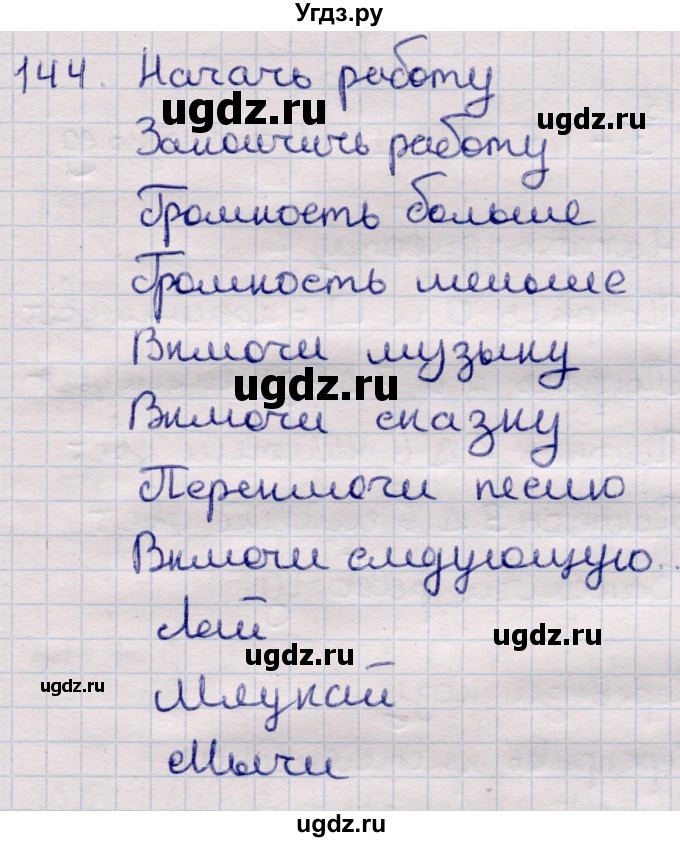 Угдз.ру
144. Начать работу
ugdz.ru
Закончить работу
Громкость больше
Громкость меньше
Включи музыку
ugdz.ru
Включи сказку
Переключи песню
Включи следующую.
Лай
ugdz.ru
ugdz.ru
Мяукай
ugdz.ru
Мычи
ugdz.ru